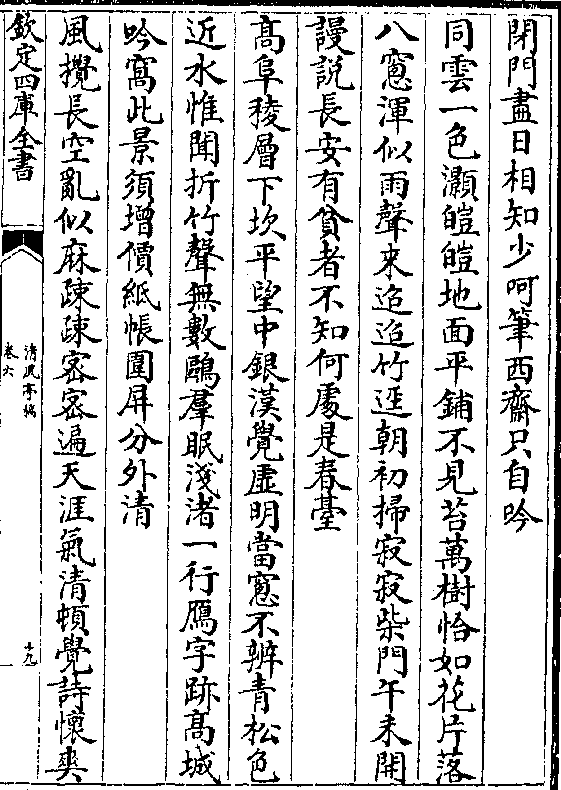 閉門盡日相知少呵筆西齋只自吟
同雲一色灝皚皚地面平鋪不見苔萬樹恰如花片落
八窻渾似雨聲來迢迢竹逕朝初掃寂寂柴門午未開
謾説長安有貧者不知何處是春臺
髙阜稜層下坎平望中銀漢覺虚明當窻不辨青松色
近水惟聞折竹聲無數鷗羣眠淺渚一行鴈字跡髙城
吟窩此景須增價紙帳圍屏分外清
風攪長空亂似麻疎疎宻宻遍天涯氣清頓覺詩懷爽
欽定四庫全書
清風亭稿
卷六
十九